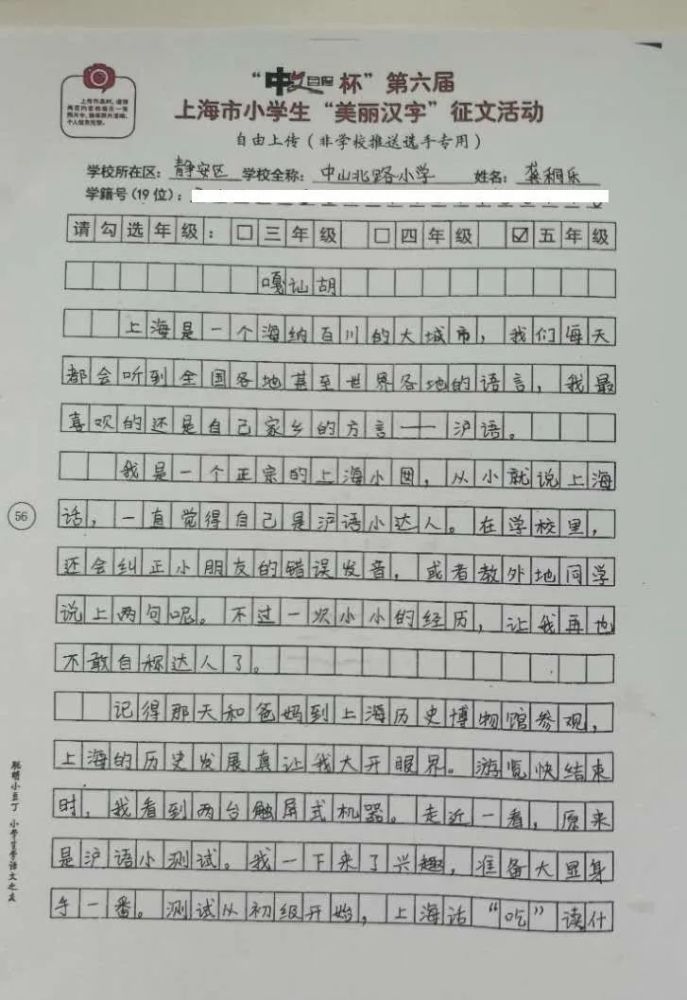 “中文自修杯”第六届
上海市小学生“美丽汉字”征文活动
自由上传(非学校推送选手专用)
学校所在区:静安区 学校全称:中山北路小学 姓名:龚稇乐
学籍号(19位):
请勾选年级:□三年级 □四年级 ☑五年级
嘎讪胡
上海是一个海纳百川的大城市,我们每天
都会听到全国各地甚至世界各地的语言,我最
喜欢的还是自己家乡的方言——沪语。
我是一个正宗的上海小囡,从小就说上海
话,一直觉得自己是沪语小达人。在学校里,
还会纠正小朋友的错误发音,或者教外地同学
说上两句呢。不过一次小小的经历,让我再也
不敢自称达人了。
56
记得那天和爸妈到上海历史博物馆参观,
上海的历史发展真让我大开眼界。游览快结束
时,我看到两台触屏式机器。走近一看,原来
是沪语小测试。我一下来了兴趣,准备大显身
手一番。测试从初级开始,上海话“吃”读什
聪明小豆丁 小学生学语文之友